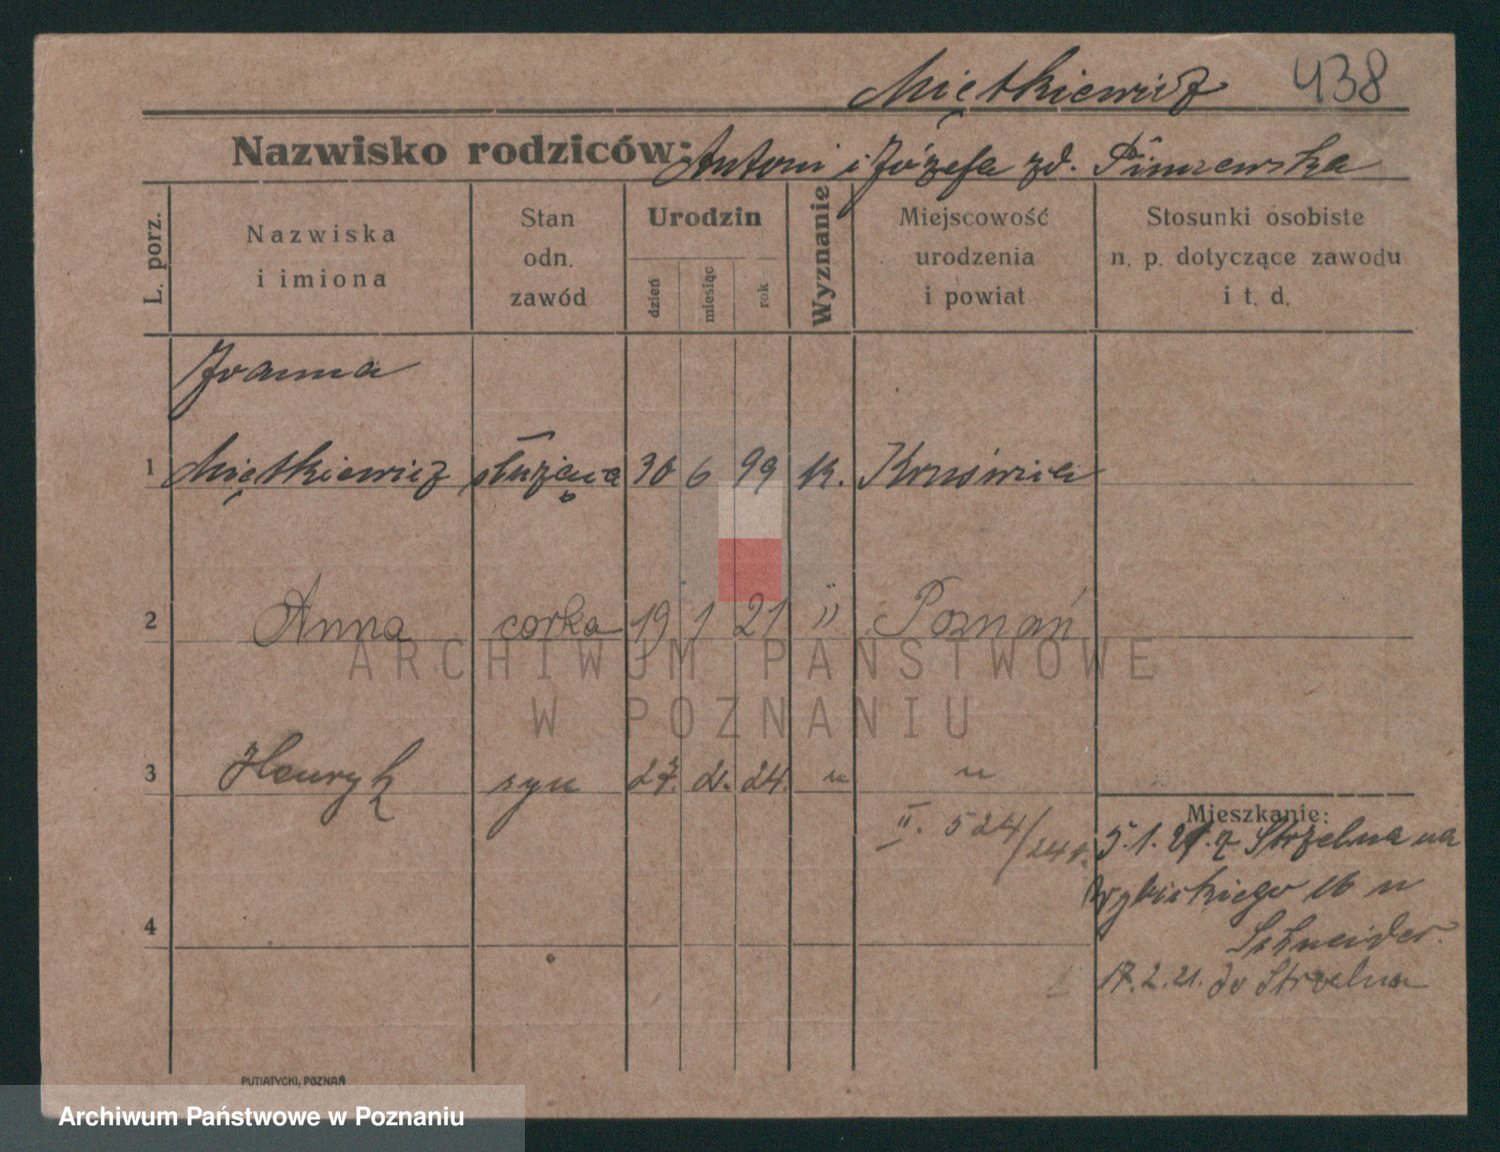 Miętkiewicz 438
Nazwisko rodziców: Antoni i Józefa zd.
L. porz.
Nazwiska
i imiona
Stan
odn.
zawód
Urodzin
dzień
miesiąc
rok
Wyznanie
Miejscowość
urodzenia
i powiat
Stosunki osobiste
n. p. dotyczące zawodu
i t. d.
Joanna
1 Miętkiewicz służąca 30 6 99 rk.
2 Anna corka 19 1 21 " Poznań
3 Henryk syn 27. 2. 24. " "
II. 524/24
Mieszkanie:
5.1.21. z Strzelna na
16 u
Schneider.
4
17.2.21. do Strzelna
PUTIATYCKI, POZNAŃ
ARCHIWUM PAŃSTWOWE
W POZNANIU
Archiwum Państwowe w Poznaniu